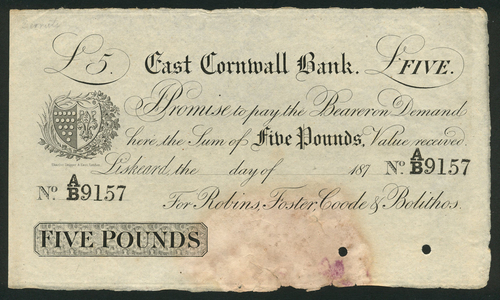 £5. East Cornwall Bank. £FIVE.
I Promise to pay the Bearer on Demand
here the Sum of Five Pounds, Value received.
Liskeard, the day of 187 No. A/B 9157
No. A/B 9157
For Robins, Foster, Coode & Bolithos.
FIVE POUNDS